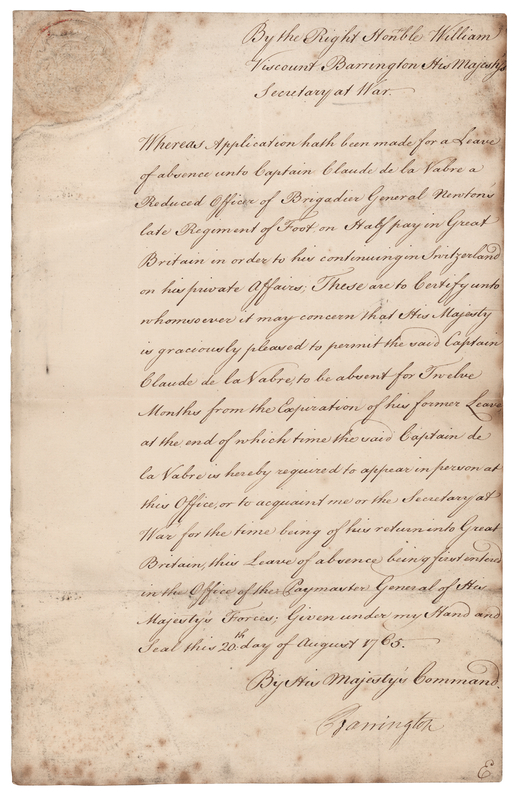 By the Right Hon.ble William
Viscount Barrington His Majesty's
Secretary at War
Whereas Application hath been made for a Leave
of absence unto Captain Claude de la Vabre a
Reduced Officer of Brigadier General Newton's
late Regiment of Foot, on Half pay in Great
Britain in order to his continuing in Switzerland
on his private Affaires; These are to Certify unto
whomsoever it may concern that His Majesty
is graciously pleased to permit the said Captain
Claude de la Vabre, to be absent for Twelve
Months from the Expiration of his former Leave
at the end of which time the said Captain de
la Vabre is hereby required to appear in person at
this Office, or to acquaint me or the Secretary at
War for the time being of his return into Great
Britain, this Leave of absence being first enter'd
in the Office of the Paymaster General of His
Majesty's Forces; Given under my Hand and
Seal this 20th day of August 1765.
By His Majesty's Command.
Barrington
E